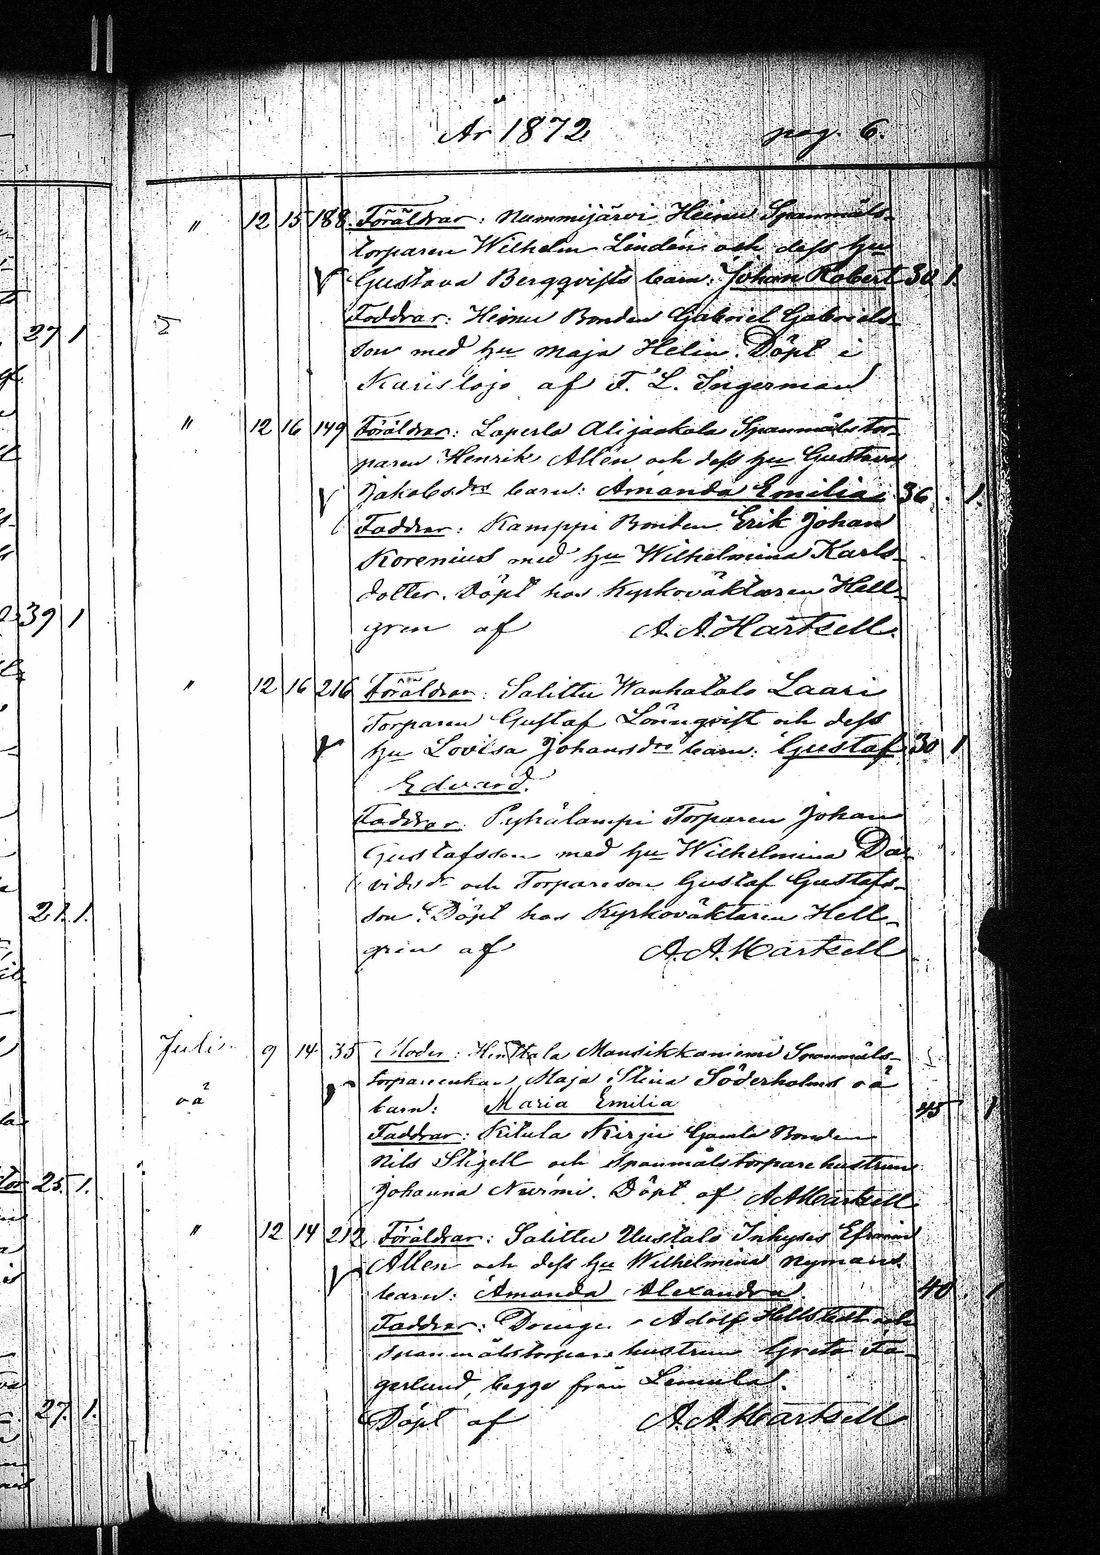 År 1872. pag. 6.
" 12 15 188. Föräldrar: Nummijärvi Heinu Spanmåls-
torparen Wilhelm Lindén och dess hu
Gustava Bergqvists barn: Johan Robert 30 1.
Faddrar: Heinu Bonden Gabriel Gabriels-
son med hu Maja Helin. Döpt i
Karislojo af F. L. Ingerman
" 12 16 149 Föräldrar: Laperla Alijaakola Spanmåls tor-
paren Henrik Allén och dess hu Gustava
Jakobsdrs barn: Amanda Emilia 36 1.
Faddrar: Kamppi Bonden Erik Johan
Korenius med hu Wilhelmina Karls-
dotter. Döpt hos Kyrkoväktaren Hell-
gren af A. A. Hartsell.
" 12 16 216 Föräldrar: Salittu Wanhatalo Laari
Torparen Gustaf Lönnqvist och dess
hu Lovisa Johansdrs barn: Gustaf 30 1
Edvard.
Faddrar: Pyhälampi Torparen Johan
Gustafsson med hu Wilhelmina Da-
vidsdr och Torpareson Gustaf Gustafs-
son. Döpt hos Kyrkoväktaren Hell-
gren af A. A. Hartsell
Juli 9 14 35 Moder: Hintala Mansikkaniemi Spanmåls-
torpareenkan Maja Stina Söderholms oä
oä
barn: Maria Emilia 45 1
Faddrar: Kitula Kirju Gamla Bonden
Nils Stigell och Spanmålstorparehustrun
Johanna Nurmi. Döpt af A A Hartsell
" 12 14 212 Föräldrar: Salittu Uustalo Inhyses Efraim
Allen och dess hu Wilhelmina Nymans
barn: Amanda Alexandra. 40. 1
Faddrar: Dräng. Adolf Hellstedt och
Spanmålstorpare hustrun Greta Fa-
gerlund, begge från Lemula.
Döpt af A. A. Hartsell
27 1
39 1
21. 1.
25. 1.
27. 1.